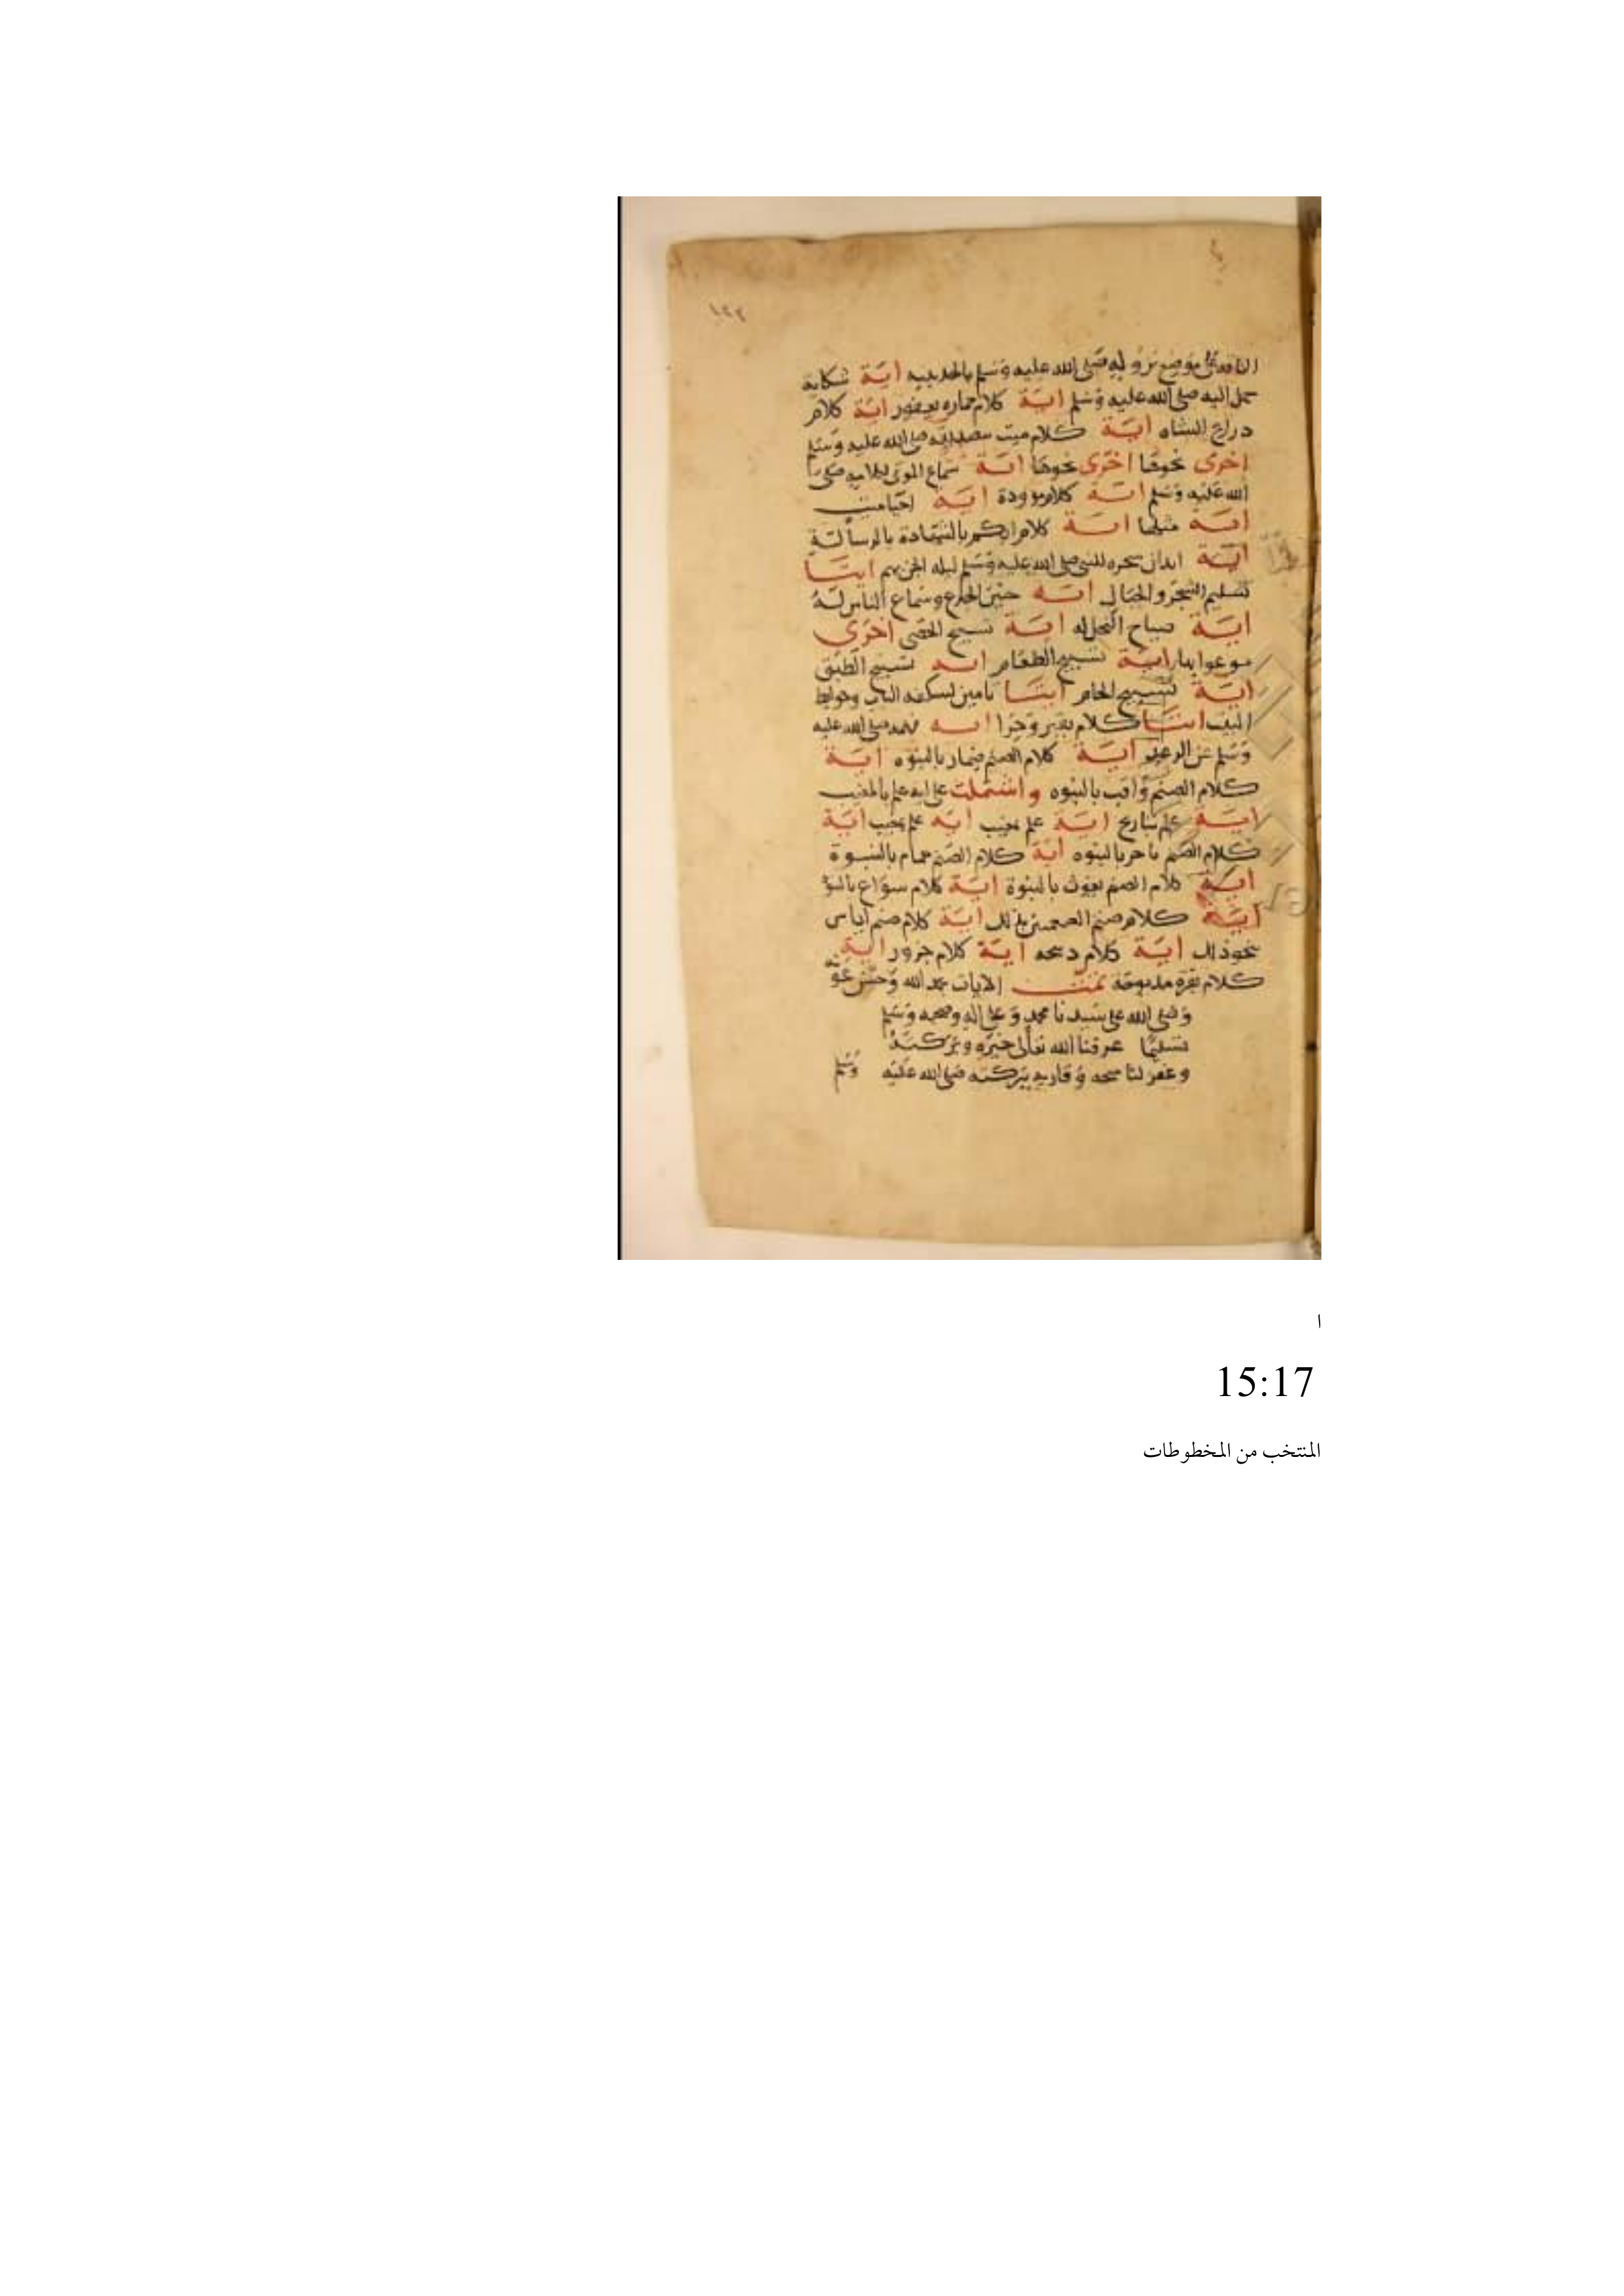 ١٤٢
موضع نزوله صلى الله عليه وسلم بالحديبيه اية شكاية
جمل اليه صلى الله عليه وسلم اية كلام حماره يعفور اية كلام
دراع الشاه اية كلام ميت صلى الله عليه وسلم
اخرى نحوها اخرى نحوها اية سماع الموتى لكلامه صلى
الله عليه وسلم اية كلام موودة اية احيا ميت
اية مثلها اية كلام ابكم بالشهادة بالرسالة
اية ايدان سحره للنبي صلى الله عليه وسلم ليله الجن بهم ايتا
تسليم الشجر والجبال اية حنين الجدع وسماع الناس له
اية صياح النخل له اية تسبيح الحصى اخرى
اية تسبيح الطعام اية تسبيح الطبق
اية تسبيح الجام ايتا تامين اسكفه الباب وحوايط
البيت ايتا كلام اية صلى الله عليه
وسلم عن اية كلام الصنم ضمار بالنبوه اية
كلام الصنم بالنبوه واشتملت على ايه علم بالمغيب
اية علم بتاريخ اية علم مغيب اية علم مغيب اية
كلام الصنم باجر بالنبوه اية كلام الصنم حمام بالنبوة
اية كلام الصنم يغوث بالنبوة اية كلام سواع بالنبوة
اية كلام صنم بذلك اية كلام صنم اياس
نحو ذلك اية كلام اية كلام جزور اية
كلام بقرة مذبوحة تمت الايات بحمد الله وحسن عونه
وصلى الله على سيدنا محمد وعلى اله وصحبه وسلم
تسليما عرفنا الله تعالى خيره وبركته
وغفر لناسخه وقاريه ببركته صلى الله عليه وسلم
ا
15:17
المنتخب من المخطوطات